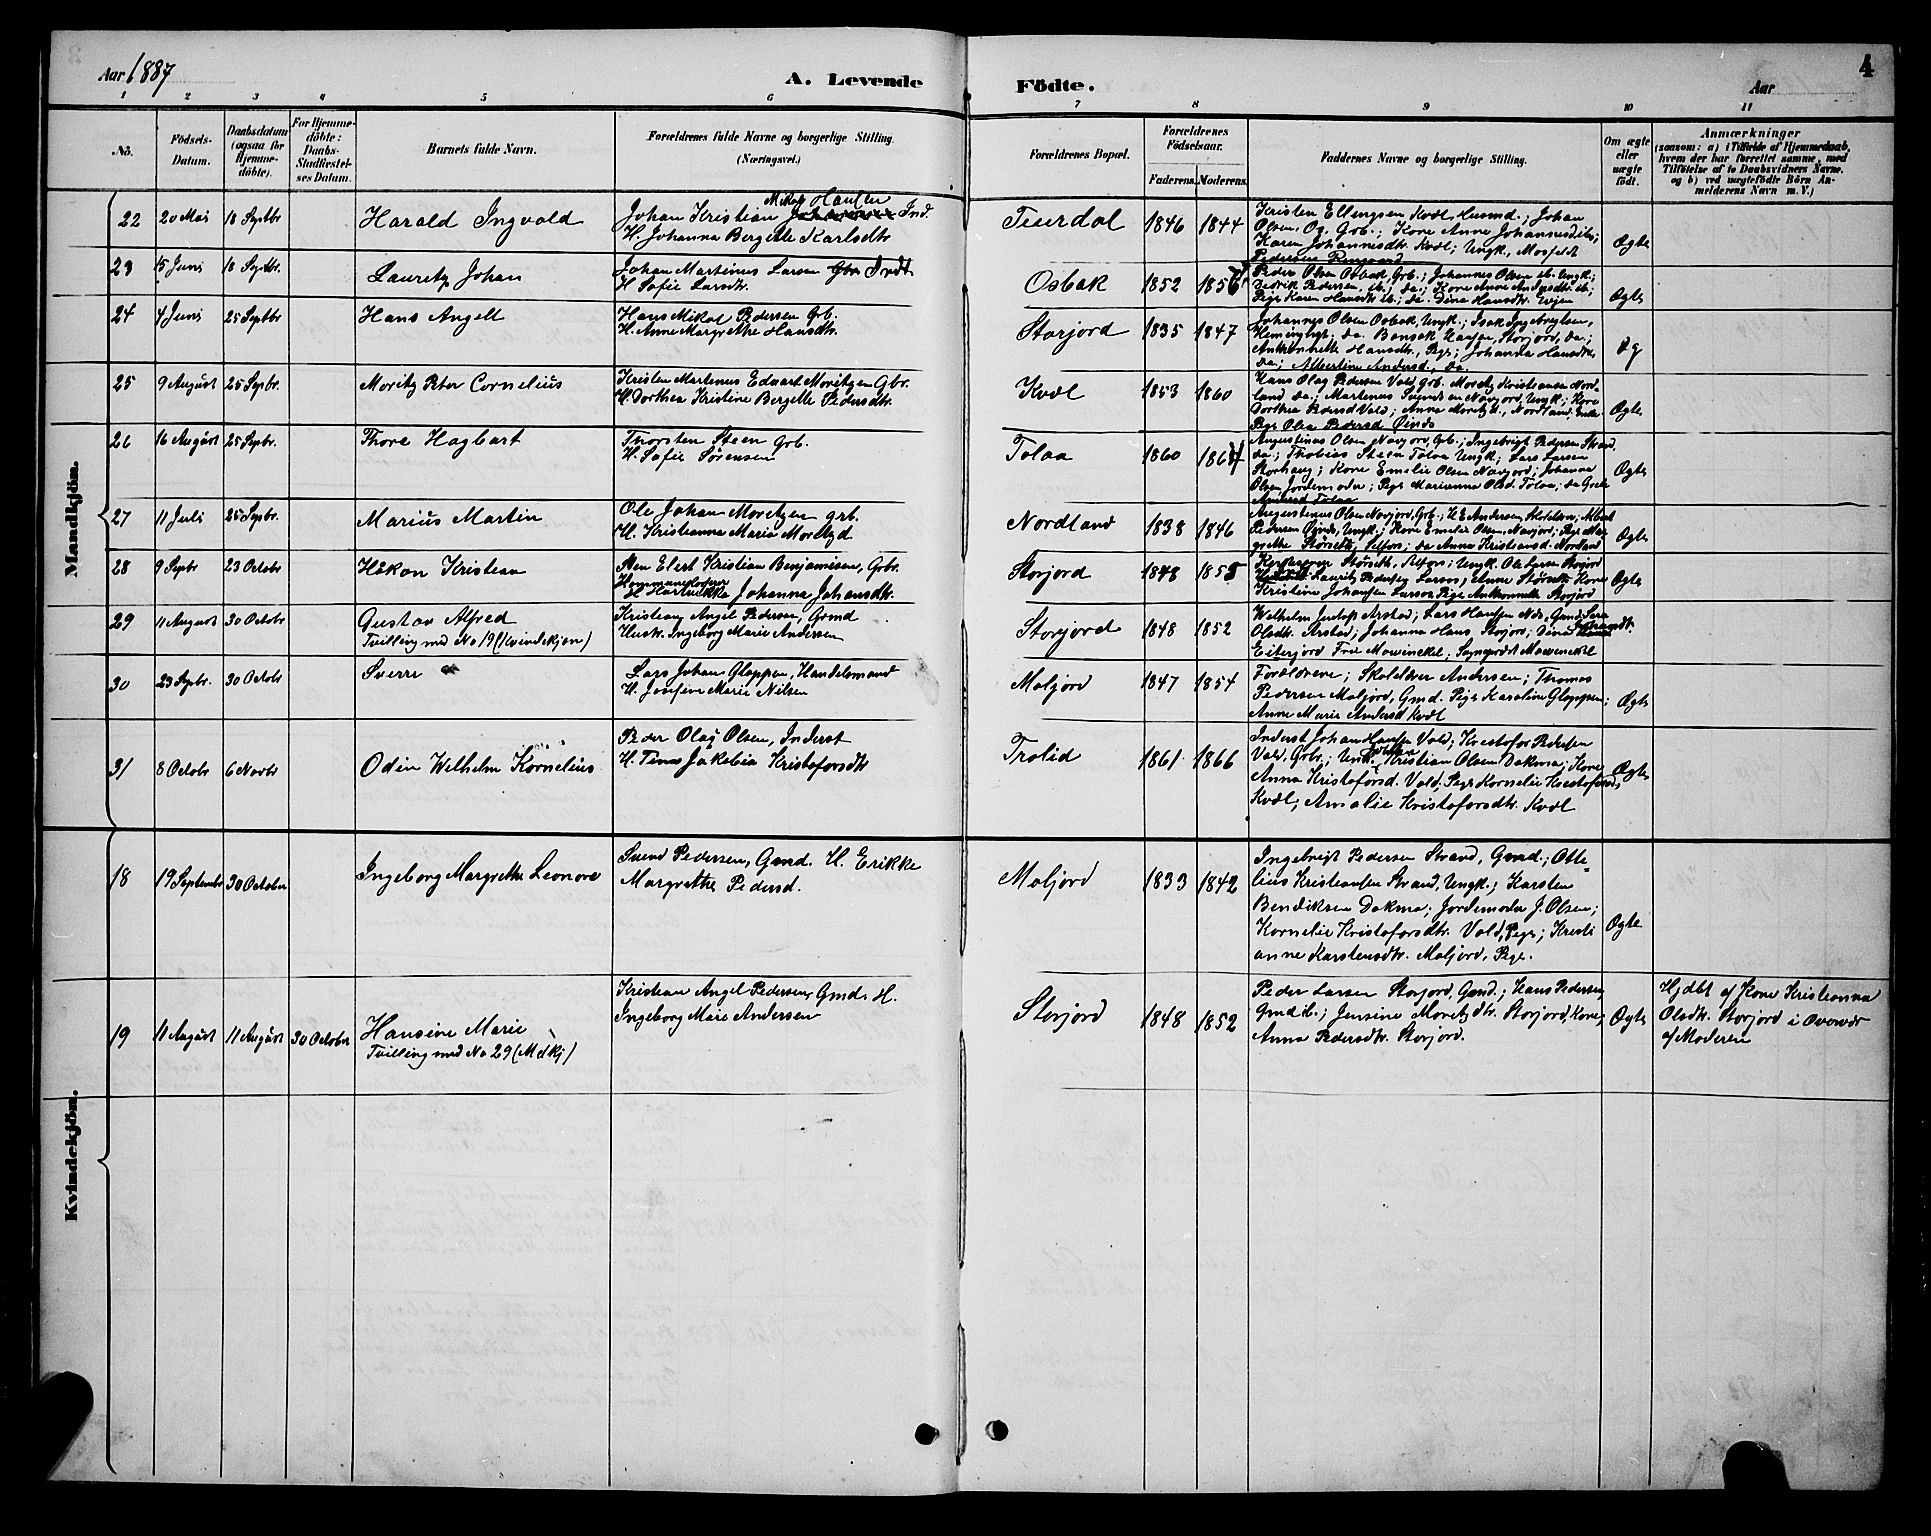 Aar 1887
A. Levende
Födte.
Aar
4
1 2 3 4 5 6 7 8 9 10 11
No.
Födsels-
Datum.
Daabsdatum
(ogsaa for
Hjemme-
döbte).
For Hjemme-
döbte:
Daabs-
Stadfæstel-
ses Datum.
Barnets fulde Navn.
Forældrenes fulde Navne og borgerlige Stilling.
(Næringsvei.)
Forældrenes Bopæl.
Forældrenes
Födselsaar.
Faderens. Moderens.
Faddernes Navne og borgerlige Stilling.
Om ægte
eller
uægte
födt.
Anmærkninger
(saasom: a) i Tilfælde af Hjemmedaab,
hvem der har forrettet samme, med
Tilföielse af to Daabsvidners Navne.
og b) ved uægtefödte Börn An-
melderens Navn m. V.)
Mandkjön.
22 20 Mai 18 Septbr Harald Ingvald
Mikal Hansen
Johan Kristian Ind.
H. Johanna Bergette Karlsdtr
1846 1844
Kristen Ellingsen Kvæl, Husmd.; Johan
Olsen, Grb.; Kone Anne Johannesd ibs;
Karen Johannesdtr. Kvæl; Ungk.
Ægte
23 15 Juni 18 Septbr. Lauretz Johan
Johan Martinus Larsen
H. Sofie Larsdtr.
Osbak 1852
Peder Olsen Osbak, Grb.; Johannes Olsen ib. Ungk.;
Didrik Pedersen, ib.; da.; Kone Anne Andersdtr. ib.;
Pige Karen Hansdtr ib.; da. Dina Hansdtr.
Ægte
24 4 Juni 25 Septbr Hans Angell
Hans Mikal Pedersen Grb.
H. Anne Margrethe Hansdtr.
Storjord 1835 1847
Johannes Olsen Osbak, Ungk.; Isak Ingebregtsen,
da. Hansen, Storjord, da.;
Hansdtr., Pige; Johanna Hansdtr,
da; Albertine Andersd., da.
Æg
25 9 August 25 Sepbr. Moritz Peter Cornelius
Kristen Martenus Edvart Moritzen Gbr.
H. Dorthea Kristine Bergette Pedersdtr.
Kvæl 1853 1860
Hans Olag Pedersen Vald, Grb. Moritz Kristiansen Nord-
land da; Martenus Navjord, Ungk.; Kone
Dorthea Pedersd Vald; Anne Moritzd., Nordland
Pige Olea Pedersd
Ægte
26 16 August 25 Sepbr. Thore Hagbart
Thorsten Steen Grb.
H. Sofie Sørensen
Tolaa 1860
Augustinus Olsen Navjord, Grb.; Ingebrigt Pedersen Strand,
da; Thobias Steen Tolaa Ungk; Lars Larsen
Storhaug; Kone Emelie Olsen Navjord; Johanna
Olsen Jordemoder; Pige Marianna Olsd. Tolaa; da
Andersd Tolaa
Ægte
27 11 Juli 25 Sepbr. Marius Martin
Ole Johan Moretzen grb.
H. Kristianna Maria Moritzd.
Nordland 1838 1846
Augustenus Olsen Navjord, Grb.; Andersen
Pedersen Ungk.; Kone Emelie Olsen Navjord; Pige
Anne Kristiansd. Nordland
Ægte
28 9 Sepbr 23 Octobr Håkon Kristian
Elert Kristian Benjaminsen, Grb.
H. Johanna Johansdtr.
Storjord 1848 1855
Storjord
Lauritz Pedersen Larsos; Anne Kone
Kristine Johansen Larsos Pige Storjord
Ægte
29 11 August 30 Octobr Gustav Alfred
Tvilling med No 19 (Kvindekjøn)
Kristian Angel Pedersen, Grmd
Hustr. Ingeborg Marie Andersen
Storjord 1848 1852
Welhelm Arstad; Lars Hansen Gmd.
Olsdtr. Arstad; Johanna Hans. Storjord; Dina
Eiterjord Frøe Mowinckel; Mowinckel
30 23 Sepbr. 30 Octobr Sverre
Lars Johan Gloppen, Handelsmand
H. Josefine Marie Nilsen
Moljord 1847 1854
Forældrene; Skolelærer Andersen; Thomas
Pedersen Moljord, Gmd. Pige Karoline Gloppen;
Anne Marie Andersd Kvæl
Ægte
31 8 Octobr 6 Novbr Odin Welhelm Kornelius
Peder Olag Olsen, Inderst
H. Tina Jakobia Kristofersdtr
Trolid 1861 1866
Inderst Johan Hansen Vald; Kristofer Pedersen
Vald, Grbr.; Ungk. Kristian Olsen Dokmo; Kone
Anna Kristofersd. Vald; Pige Kornelie Kristofersd.
Kvæl; Amalie Kristofersdtr. Kvæl
Ægte
Kvindekjön.
18 19 Septembr 30 October Ingeborg Margrethe Leonore
Svend Pedersen, Gmd. H. Erikke
Margrethe Pedersd.
Moljord 1833 1842
Ingebrigt Pedersen Strand, Gmd.; Otte-
lius Kristiansen Strand, Ungk.; Karsten
Bendiksen Dokmo; Jordemoder J. Olsen;
Kornelie Kristofersdtr. Vold, Pige; Kristi
anne Karstensdtr. Moljord, Pige.
Ægte
19 11 August 11 August 30 October Hansine Marie
Tvilling med No 29 (Mdkj)
Kristian Angel Pedersen, Gmd. H.
Ingeborg Marie Andersen
Storjord 1848 1852
Peder Larsen Storjord, Gmd.; Hans Pedersen,
Gmd ib.; Jensine Moritzdtr. Storjord, Kone;
Anna Pedersdtr. Storjord.
Ægte
Hjdbt af Kone Kristianna
Olsdtr. Storjord i Overvær
af Moderen